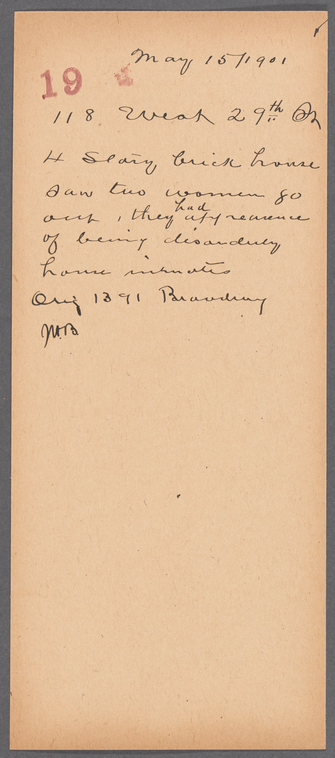 May 15/1901
19
118 West 29th St
4 Story brick house
saw two women go
out, they had appearance
of being disorderly
house inmates
Orig 1391 Broadway